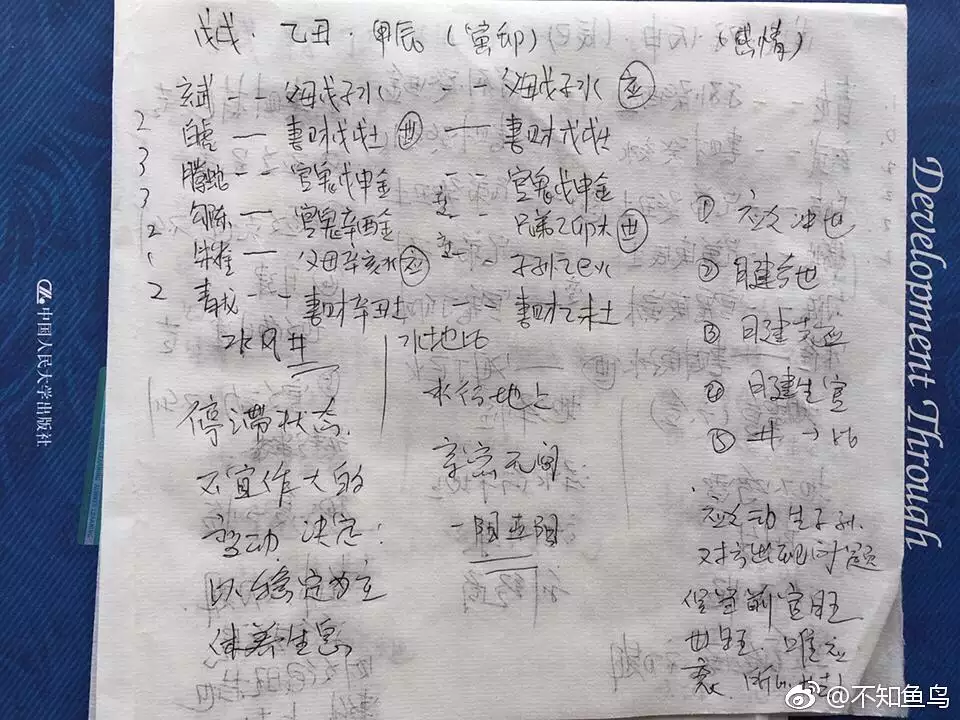 戊戌·乙丑·甲辰(寅卯) (感情)
玄武 -- 父母戊子水 -- 父母戊子水 应
2 白虎 — 妻财戊戌土 世 — 妻财戊戌土
3 腾蛇 -- 官鬼戊申金 -- 官鬼戊申金
3 勾陈 — 官鬼辛酉金 -- 兄弟乙卯木 世
2 朱雀 — 父母辛亥水 应 -- 子孙乙巳火
2 青龙 -- 妻财辛丑土 妻财乙未土
水风井
停滞状态
不宜作大的
变动 决定:
以稳定为主
休养生息
水地比
水行地上
亲密无间
① 应爻冲世
② 日建合世
③ 日建克应
④ 日建生官
⑤ 井→比
应爻动生子孙
对方出现问题
但当前官旺
世旺 唯应
衰
Development Through
中国人民大学出版社
@不知鱼鸟